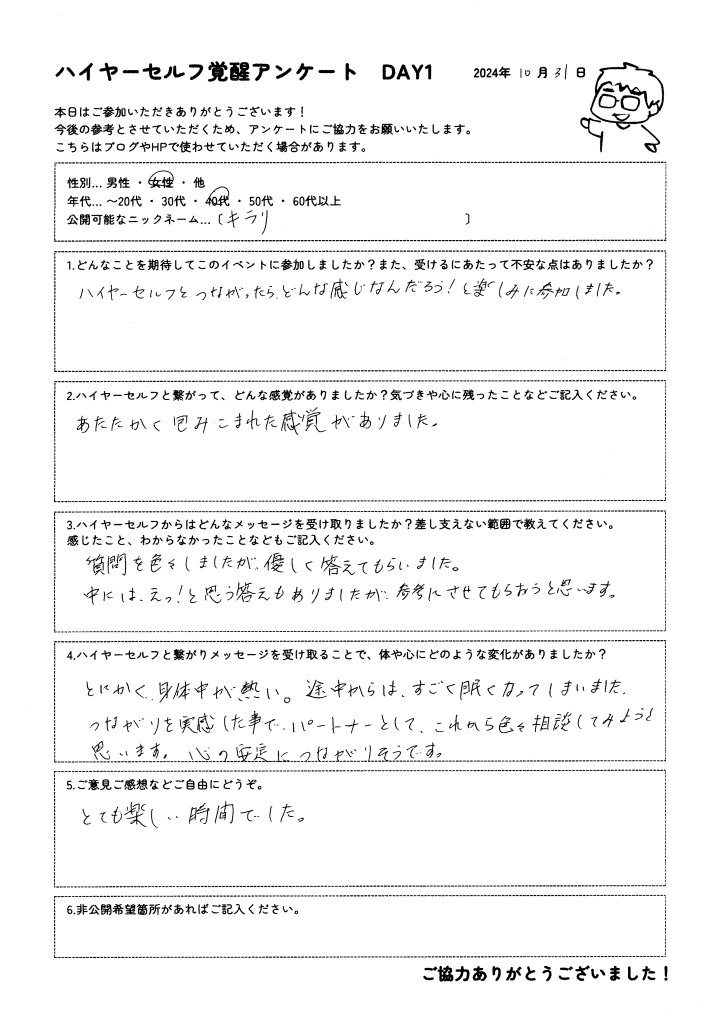 ハイヤーセルフ覚醒アンケート DAY1 2024年 10月 31日
本日はご参加いただきありがとうございます！
今後の参考とさせていただくため、アンケートにご協力をお願いいたします。
こちらはブログやHPで使わせていただく場合があります。
性別… 男性 ・ 女性 ・ 他
年代… 〜20代 ・ 30代 ・ 40代 ・ 50代 ・ 60代以上
公開可能なニックネーム…〔キラリ 〕
1.どんなことを期待してこのイベントに参加しましたか？また、受けるにあたって不安な点はありましたか？
ハイヤーセルフとつながったら、どんな感じなんだろう！と楽しみに参加しました。
2.ハイヤーセルフと繋がって、どんな感覚がありましたか？気づきや心に残ったことなどご記入ください。
あたたかく包みこまれた感覚がありました。
3.ハイヤーセルフからはどんなメッセージを受け取りましたか？差し支えない範囲で教えてください。
感じたこと、わからなかったことなどもご記入ください。
質問を色々しましたが、優しく答えてもらいました。
中には、えっ！と思う答えもありましたが、参考にさせてもらおうと思います。
4.ハイヤーセルフと繋がりメッセージを受け取ることで、体や心にどのような変化がありましたか？
とにかく、身体中が熱い。途中からは、すごく眠くなってしまいました。
つながりを実感した事で、パートナーとして、これから色々相談してみようと
思います。心の安定につながりそうです。
5.ご意見ご感想などご自由にどうぞ。
とても楽しい時間でした。
6.非公開希望箇所があればご記入ください。
ご協力ありがとうございました！